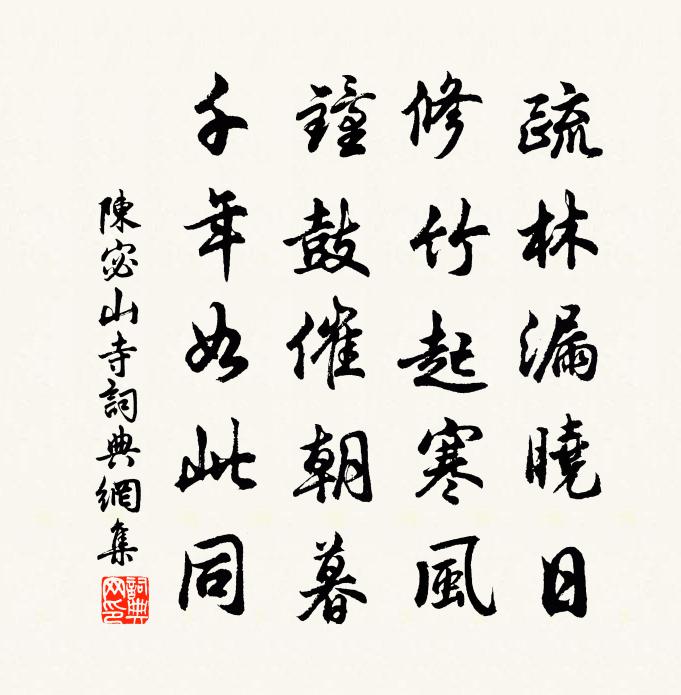 疏林漏曉日
修竹起寒風
鐘鼓催朝暮
千年如此同
陳宓山寺詞典網集
詞典網印